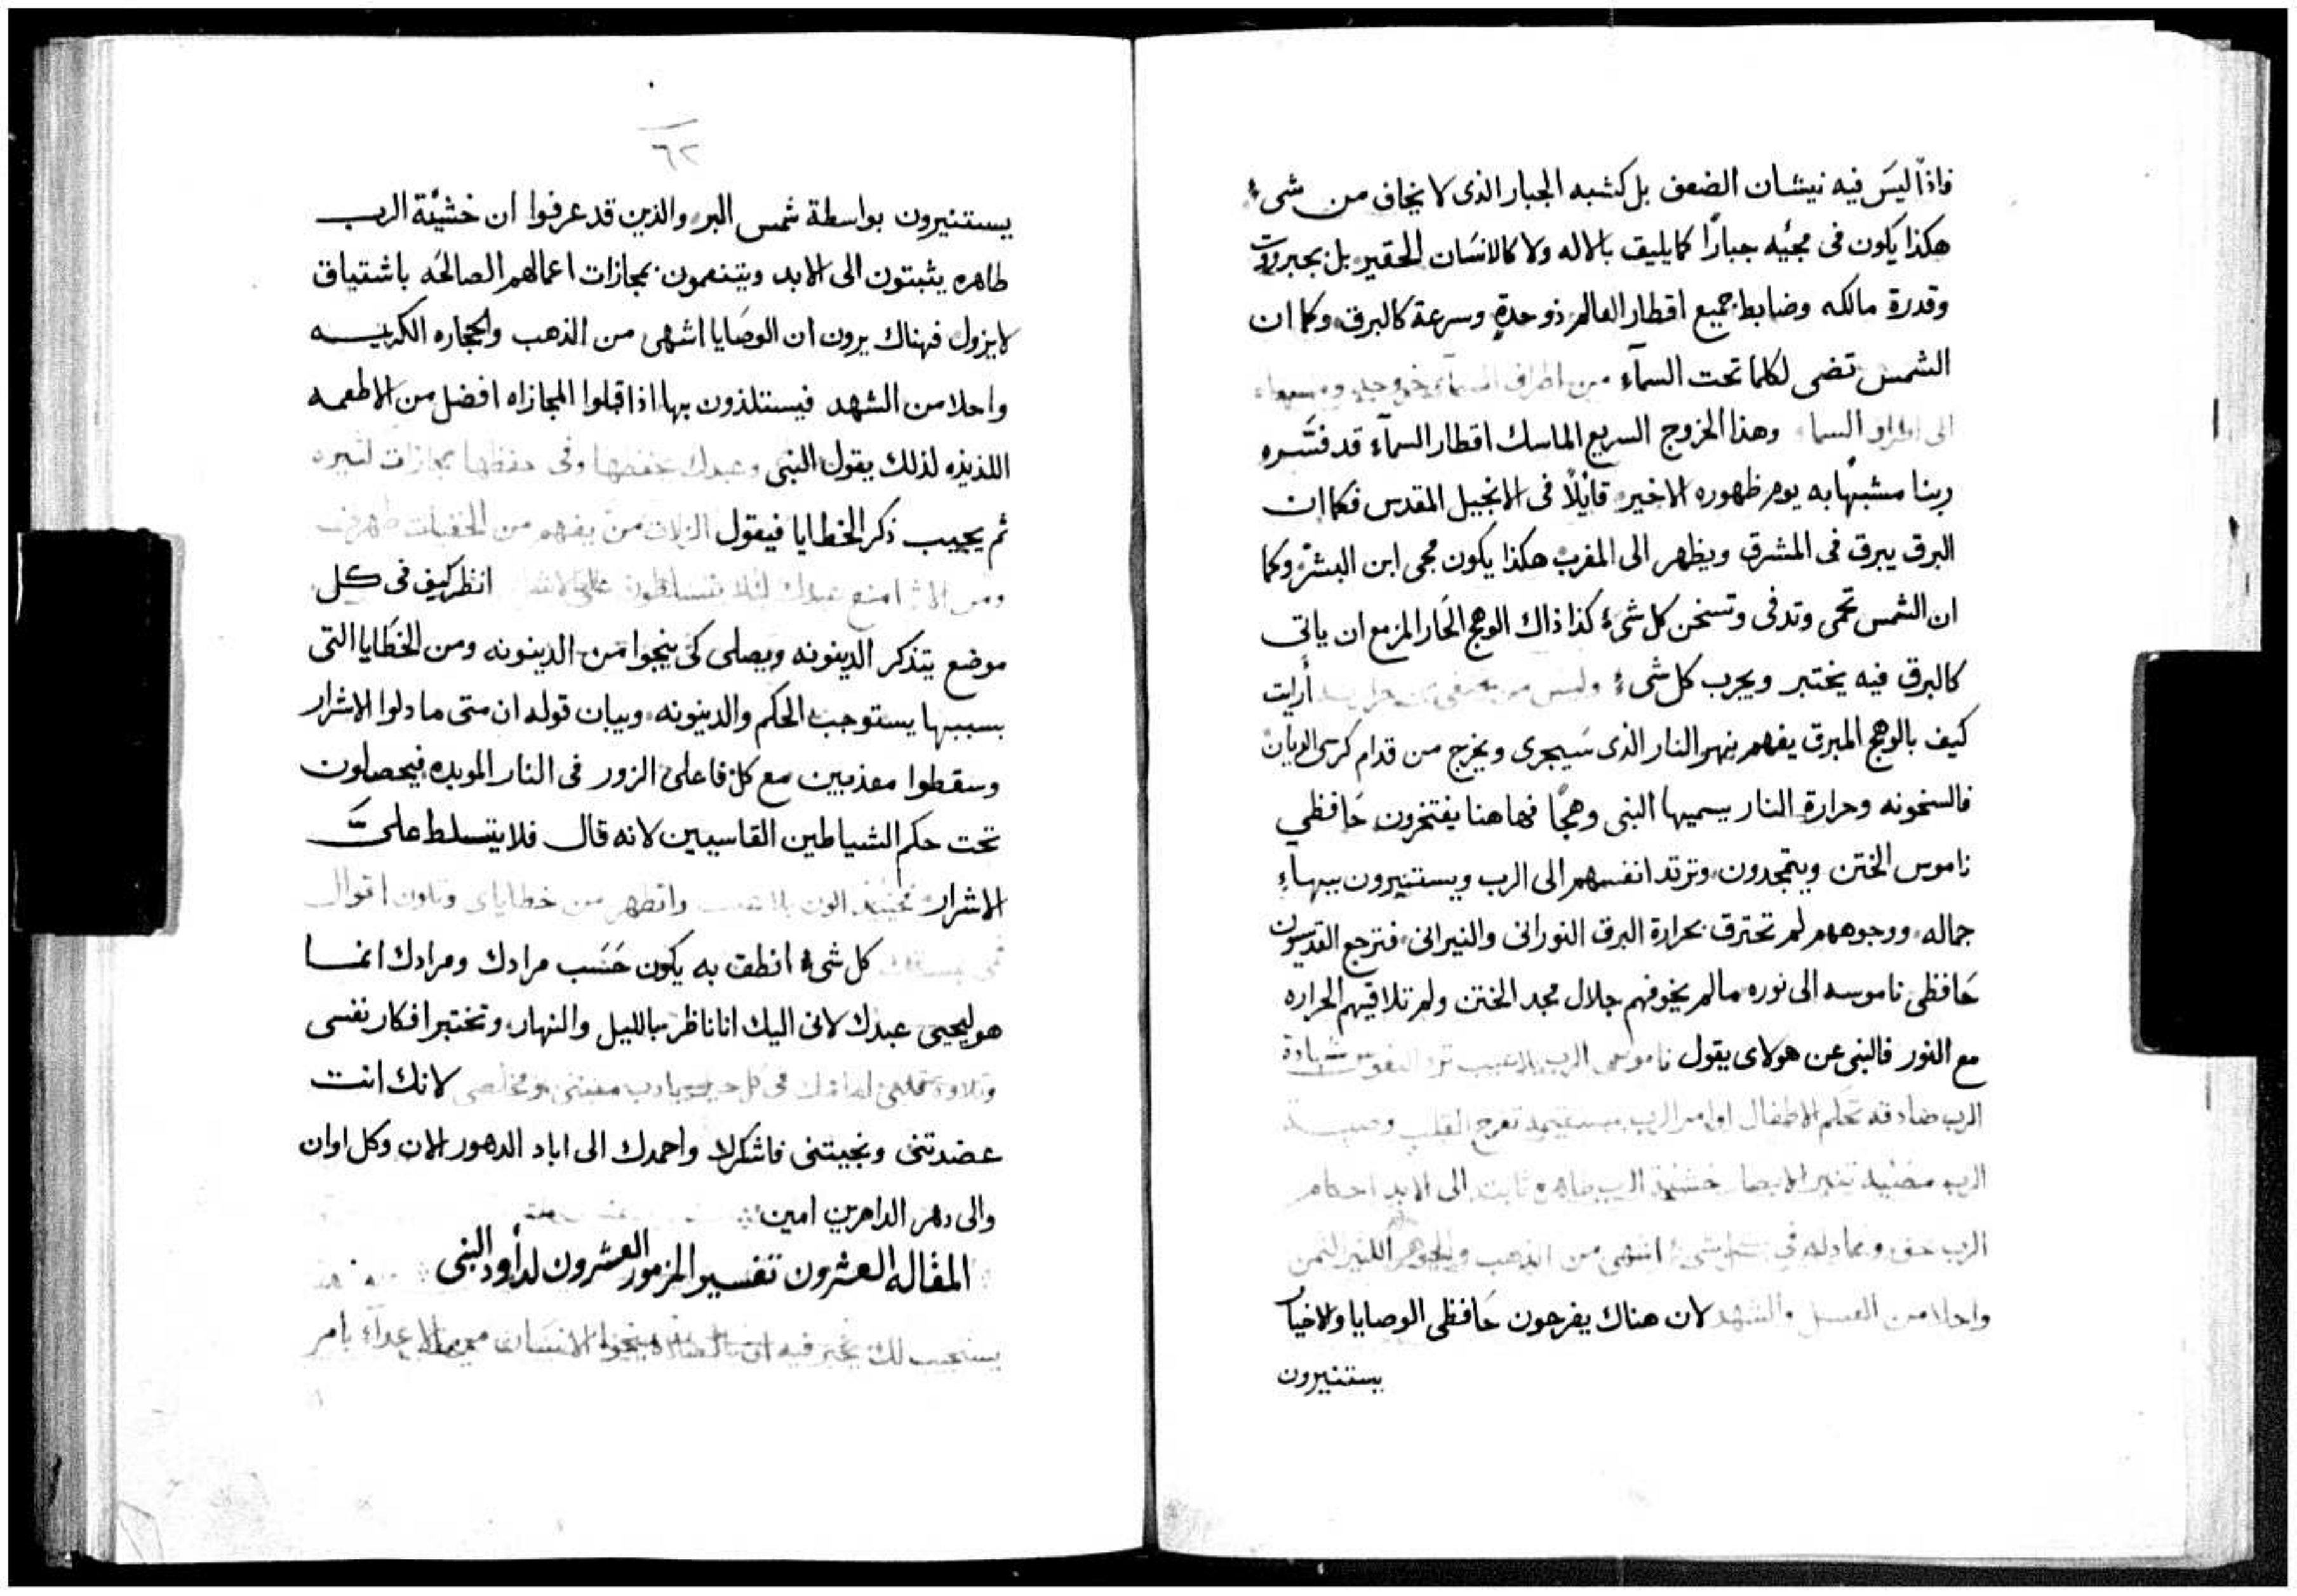 فاذًا ليسَ فيه نيشان الضعف بل كشبه الجبار الذى لا يخاف من شىء
هكذا يكون فى مجيه جبارًا كما يليق بالاله ولا كالانسَان الحقير بل بجبروت
وقدرة مالكه وضابط جميع اقطار العالم ذو حدةٍ وسرعة كالبرق وكما ان
الشمس تضى لكلما تحت السمآء من اطراف السما خروجه
الى اطراف السما وهذا الخروج السريع الماسك اقطار السمآء قد فسَّره
ربنا مشبهًا به يوم ظهوره الاخير قايلًا فى الانجيل المقدس فكما ان
البرق يبرق فى المشرق ويظهر الى المغرب هكذا يكون مجى ابن البشر وكما
ان الشمس تحمى وتدفى وتسخن كل شىء كذا ذاك الوهج الحَار المزمع ان ياتى
كالبرق فيه يختبر ويجرب كل شىء وليس من أرايت
كيف بالوهج المبرق يفهم نهر النار الذى سَيجرى ويخرج من قدام كرسى الديان
فالسخونه وحرارة النار يسميها النبى وهجًا فهاهنا يفتخرون حَافظي
ناموس الختن ويتمجدون وترتد انفسهم الى الرب ويستنيرون ببهآءِ
جماله ووجوههم لم تحترق بحرارة البرق النورانى والنيرانى فترجع القديسون
حَافظى ناموسه الى نوره مالم يخوفهم جلال مجد الختن ولم تلاقيهم الحراره
مع النور فالنبى عن هولاى يقول ناموس الرب بلا عيب ترد النفوس شهادة
الرب صادقه تحكم الاطفال اوامر الرب مستقيمه تفرح القلب وصية
الرب مضيه تنير الابصار خشية الرب طاهره ثابته الى الابد احكام
الرب حق وعادله فى اشهى من الذهب والجوهر الكثير الثمن
واحلا من العسل والشهد لان هناك يفرحون حَافظى الوصايا والاخيار
يستنيرون
٦٢
يستنيرون بواسطة شمس البر والذين قد عرفوا ان خشيَة الرب
طاهره يثبتون الى الابد ويتنعمون بمجازات اعمالهم الصالحَه باشتياق
لا يزول فهناك يرون ان الوصَايا اشهى من الذهب والحجاره الكريمه
واحلا من الشهد فيستلذون بها اذا قبلوا المجازاه افضل من الاطعمه
اللذيذه لذلك يقول النبى وعبدك يحفظها وفى حفظها مجازات كثيره
ثم يجيب ذكر الخطايا فيقول الزلات من يفهم من الخفيات طهرنى
ومن امنع عبدك لئلا انظر كيف فى كل
موضع يتذكر الدينونه ويصلى كى ينجوا من الدينونه ومن الخطَايا التى
بسببها يستوجب الحكم والدينونه وبيان قوله ان متى ما دلوا الاشرار
وسقطوا معذبين مع كل فاعلى الزور فى النار الموبده فيحصلون
تحت حكم الشياطين القاسيين لانه قال فلا يتسلط علىَّ
الاشرار فحينيذ اكون بلا عيب واتطهر من خطاياى وتكون اقوال
فمى كل شىء انطق به يكون حَسَب مرادك ومرادك انما
هو ليحيى عبدك لانى اليك انا ناظر بالليل والنهار وتختبر افكار نفسى
وتلاوة قلبى امامك فى كل حين يا رب معينى ومخلصى لانك انت
عضدتنى ونجيتنى فاشكرك واحمدك الى اباد الدهور الان وكل اوان
والى دهر الداهرين امين
المقاله العشرون تفسير المزمور العشرون لداود النبى
يستجيب لك فيه ينجوا الانسَان من الاعدآء بامر